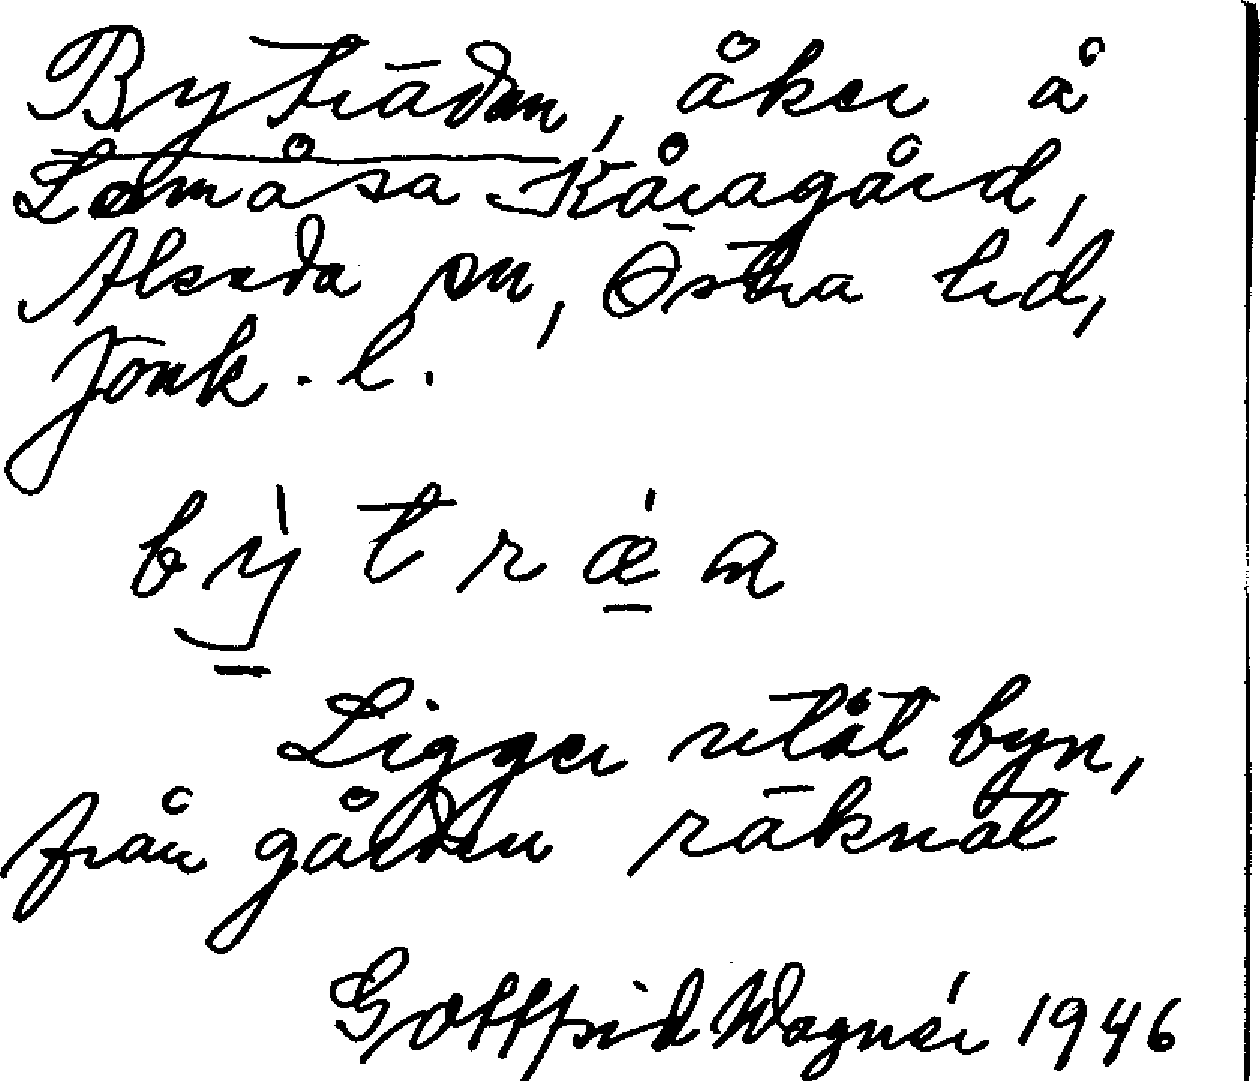 Byträdan, åker å
Lomåsa Kåragård,
Alseda sn, Östra hd,
Jönk. l.
bỳträ́a
Ligger utåt byn,
från gården räknat
Gottfrid Wagnér 1946